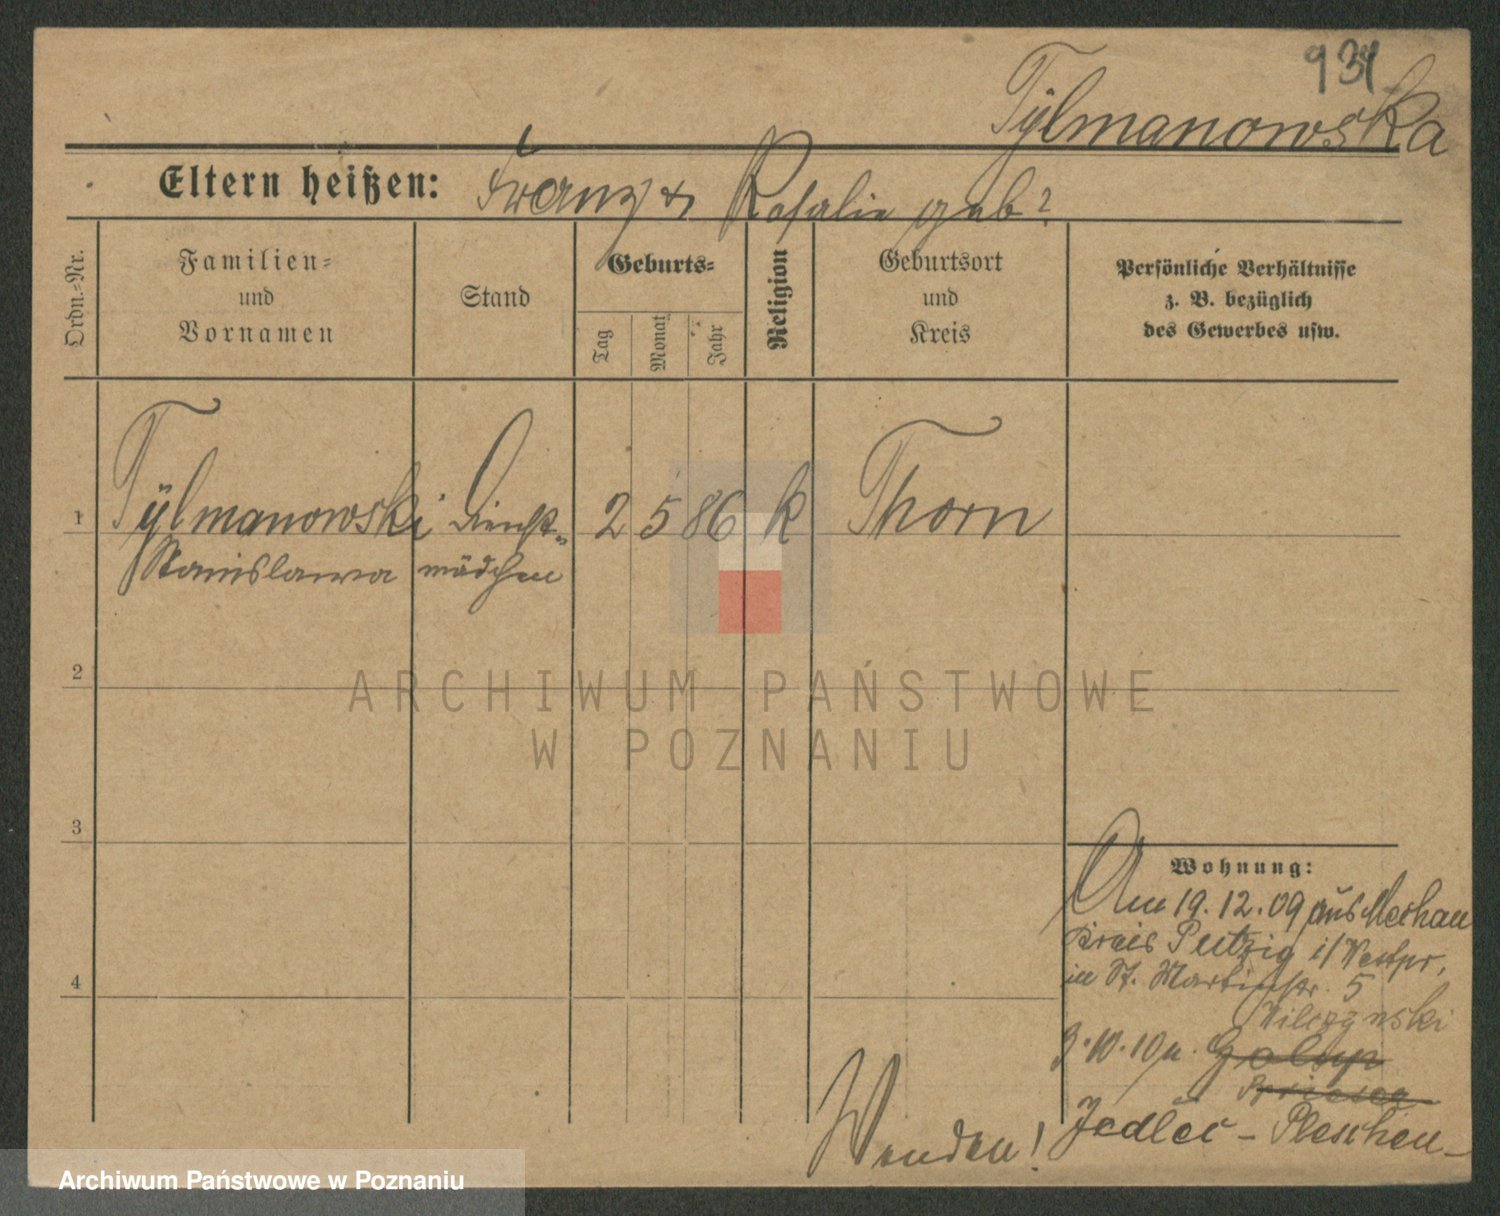 934
Tÿlmanowska
Eltern heißen: Franz & Rosalie geb?
Ordn.-Nr.
Familien-
und
Vornamen
Stand
Geburts-
Tag
Monat
Jahr
Religion
Geburtsort
und
Kreis
Persönliche Verhältnisse
z. B. bezüglich
des Gewerbes usw.
1 Tÿlmanowski Dienst- 2 5 86 k Thorn
Stanislawa mädchen
2
3
4
Wohnung:
Am 19. 12. 09 aus Mechau
Kreis Putzig i/Westpr.
in St. Martinstr. 5
Wilczynski
3.10.10 n. Golup
Jedlec - Pleschen -
Wenden!
ARCHIWUM PAŃSTWOWE
W POZNANIU
Archiwum Państwowe w Poznaniu